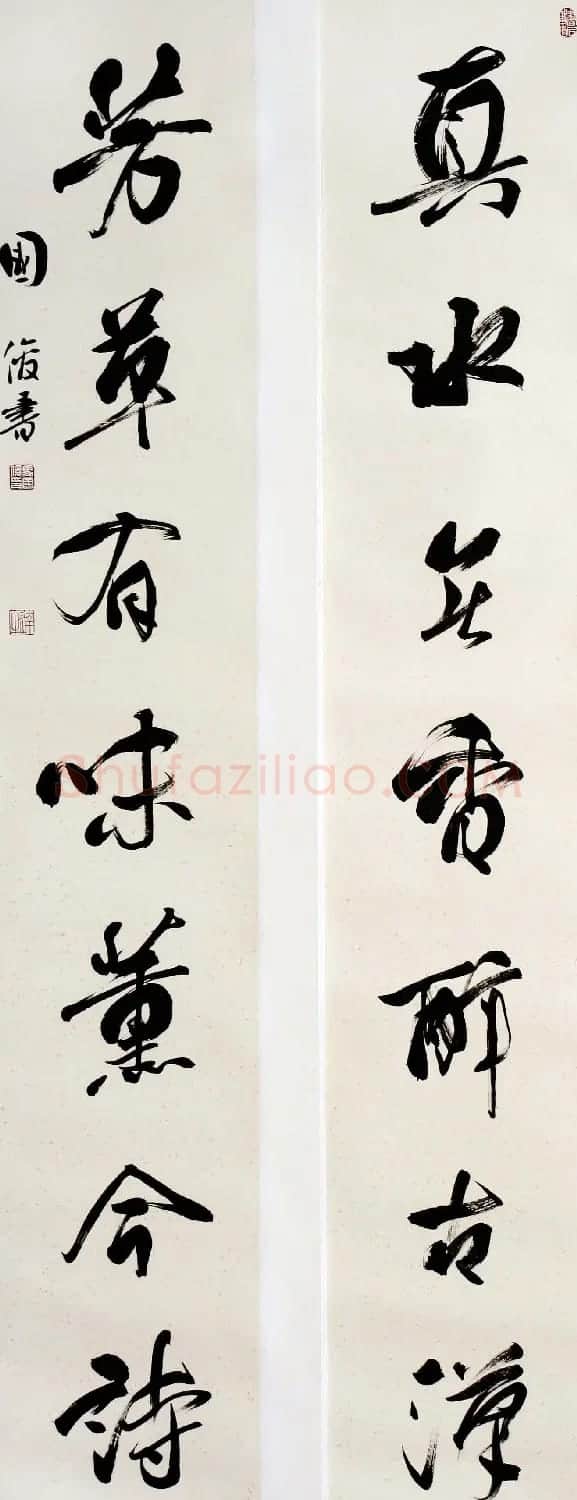 真水无香醉古漢
芳草有味薰今詩
國俊書
Shufaziliao.com